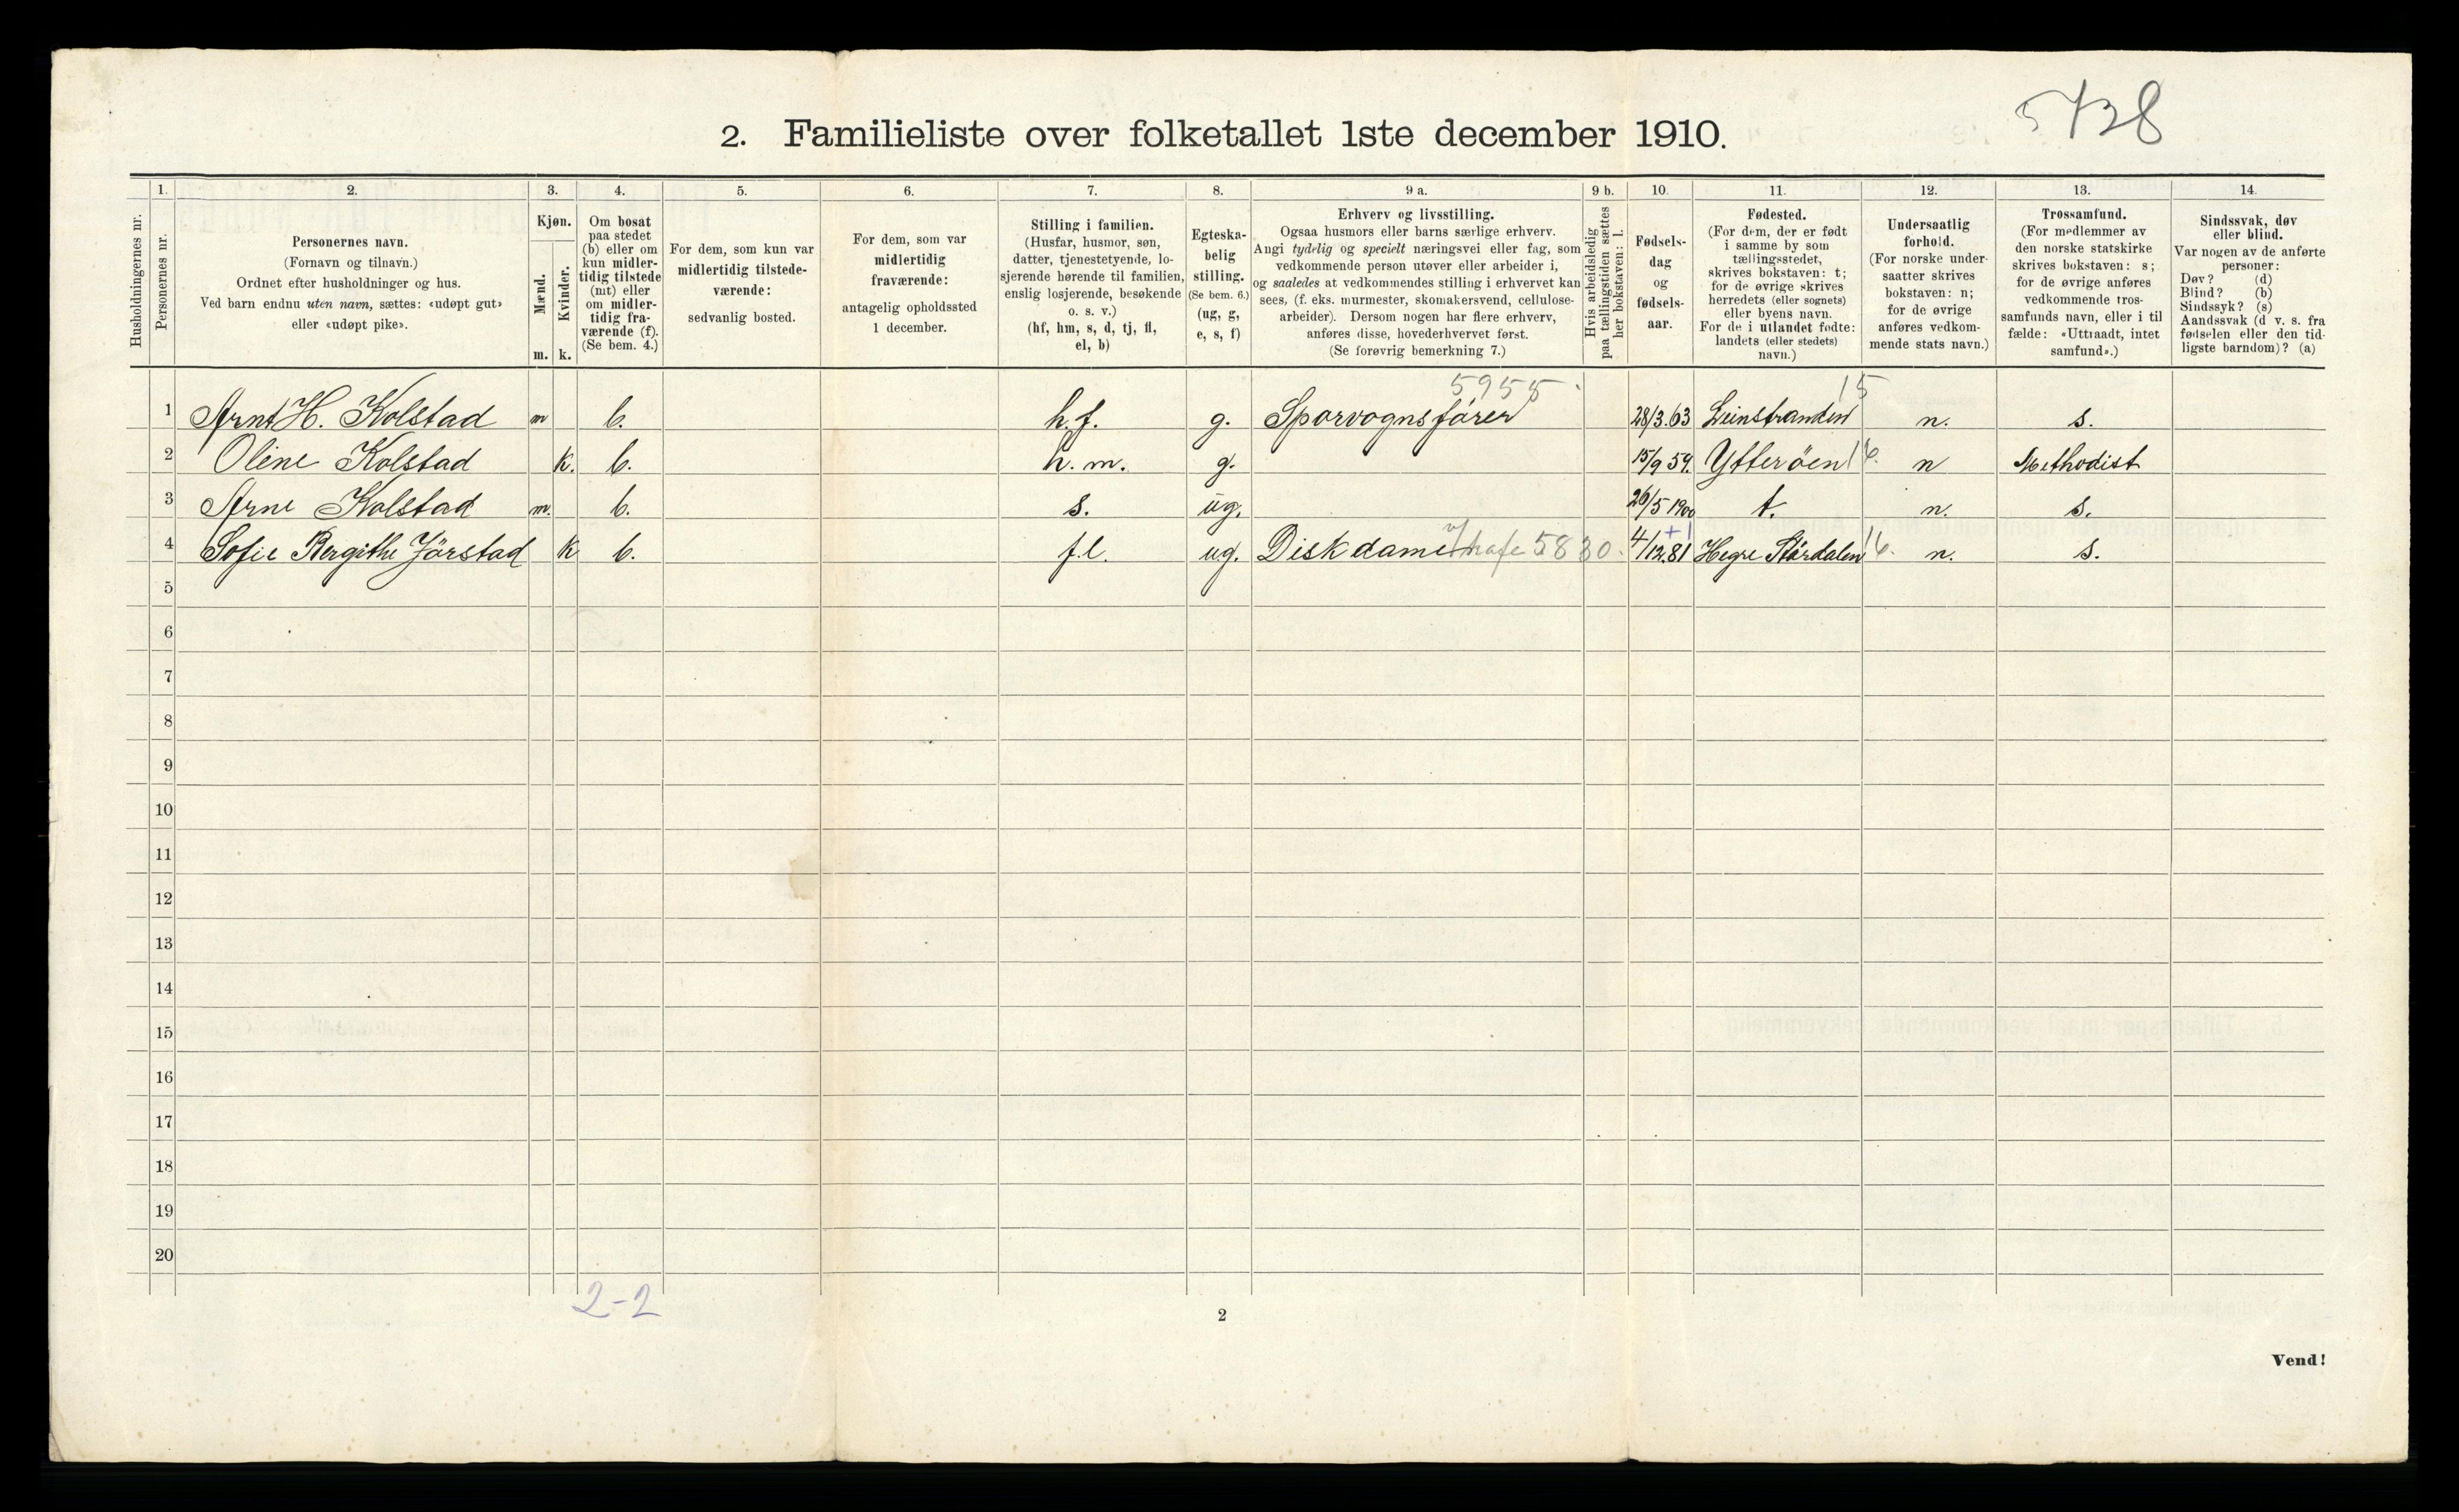 5738
2. Familieliste over folketallet 1ste december 1910.
1. 2. 3. 4. 5. 6. 7. 8. 9 a. 9 b. 10. 11. 12. 13. 14.
Husholdningernes nr.
Personernes nr.
Personernes navn.
(Fornavn og tilnavn.)
Ordnet efter husholdninger og hus.
Ved barn endnu uten navn, sættes: «udøpt gut»
eller «udøpt pike».
Kjøn.
Mænd.
Kvinder.
m. k.
Om bosat
paa stedet
(b) eller om
kun midler-
tidig tilstede
(mt) eller
om midler-
tidig fra-
værende (f).
(Se bem. 4.)
For dem, som kun var
midlertidig tilstede-
værende:
sedvanlig bosted.
For dem, som var
midlertidig
fraværende:
antagelig opholdssted
1 december.
Stilling i familien.
(Husfar, husmor, søn,
datter, tjenestetyende, lo-
sjerende hørende til familien,
enslig losjerende, besøkende
o. s. v.)
(hf, hm, s, d, tj, fl,
el, b)
Egteska-
belig
stilling.
(Se bem. 6.)
(ug, g,
e, s, f)
Erhverv og livsstilling.
Ogsaa husmors eller barns særlige erhverv.
Angi tydelig og specielt næringsvei eller fag, som
vedkommende person utøver eller arbeider i,
og saaledes at vedkommendes stilling i erhvervet kan
sees, (f. eks. murmester, skomakersvend, cellulose-
arbeider). Dersom nogen har flere erhverv,
anføres disse, hovederhvervet først.
(Se forøvrig bemerkning 7.)
Hvis arbeidsledig
paa tællingstiden sættes
her bokstaven: l.
Fødsels-
dag
og
fødsels-
aar.
Fødested.
(For dem, der er født
i samme by som
tællingsstedet,
skrives bokstaven: t;
for de øvrige skrives
herredets (eller sognets)
eller byens navn.
For de i utlandet fødte:
landets (eller stedets)
navn.)
Undersaatlig
forhold.
(For norske under-
saatter skrives
bokstaven: n;
for de øvrige
anføres vedkom-
mende stats navn.)
Trossamfund.
(For medlemmer av
den norske statskirke
skrives bokstaven: s;
for de øvrige anføres
vedkommende tros-
samfunds navn, eller i til
fælde: «Uttraadt, intet
samfund».)
Sindssvak, døv
eller blind.
Var nogen av de anførte
personer:
Døv? (d)
Blind? (b)
Sindssyk? (s)
Aandssvak (d v. s. fra
fødselen eller den tid-
ligste barndom)? (a)
5955 15
1 Arnt H. Kolstad m b. h.f. g. Sporvognsfører 28/3.63 Leinstranden n. s.
2 Oline Kolstad k. b. h.m. g. 15/9 59. Ytterøen 16. n Methodist
3 Arne Kolstad m. b. s. ug. 26/5 1900 t. n. s.
4 Sofie Bergithe Jörstad k b. f.l. ug. Diskdame v/kafe 5830. 4/12.81 Hegre Stördalen 16. n. s.
5
6
7
8
9
10
11
12
13
14
15
16
17
18
19
20
2-2
2
Vend!